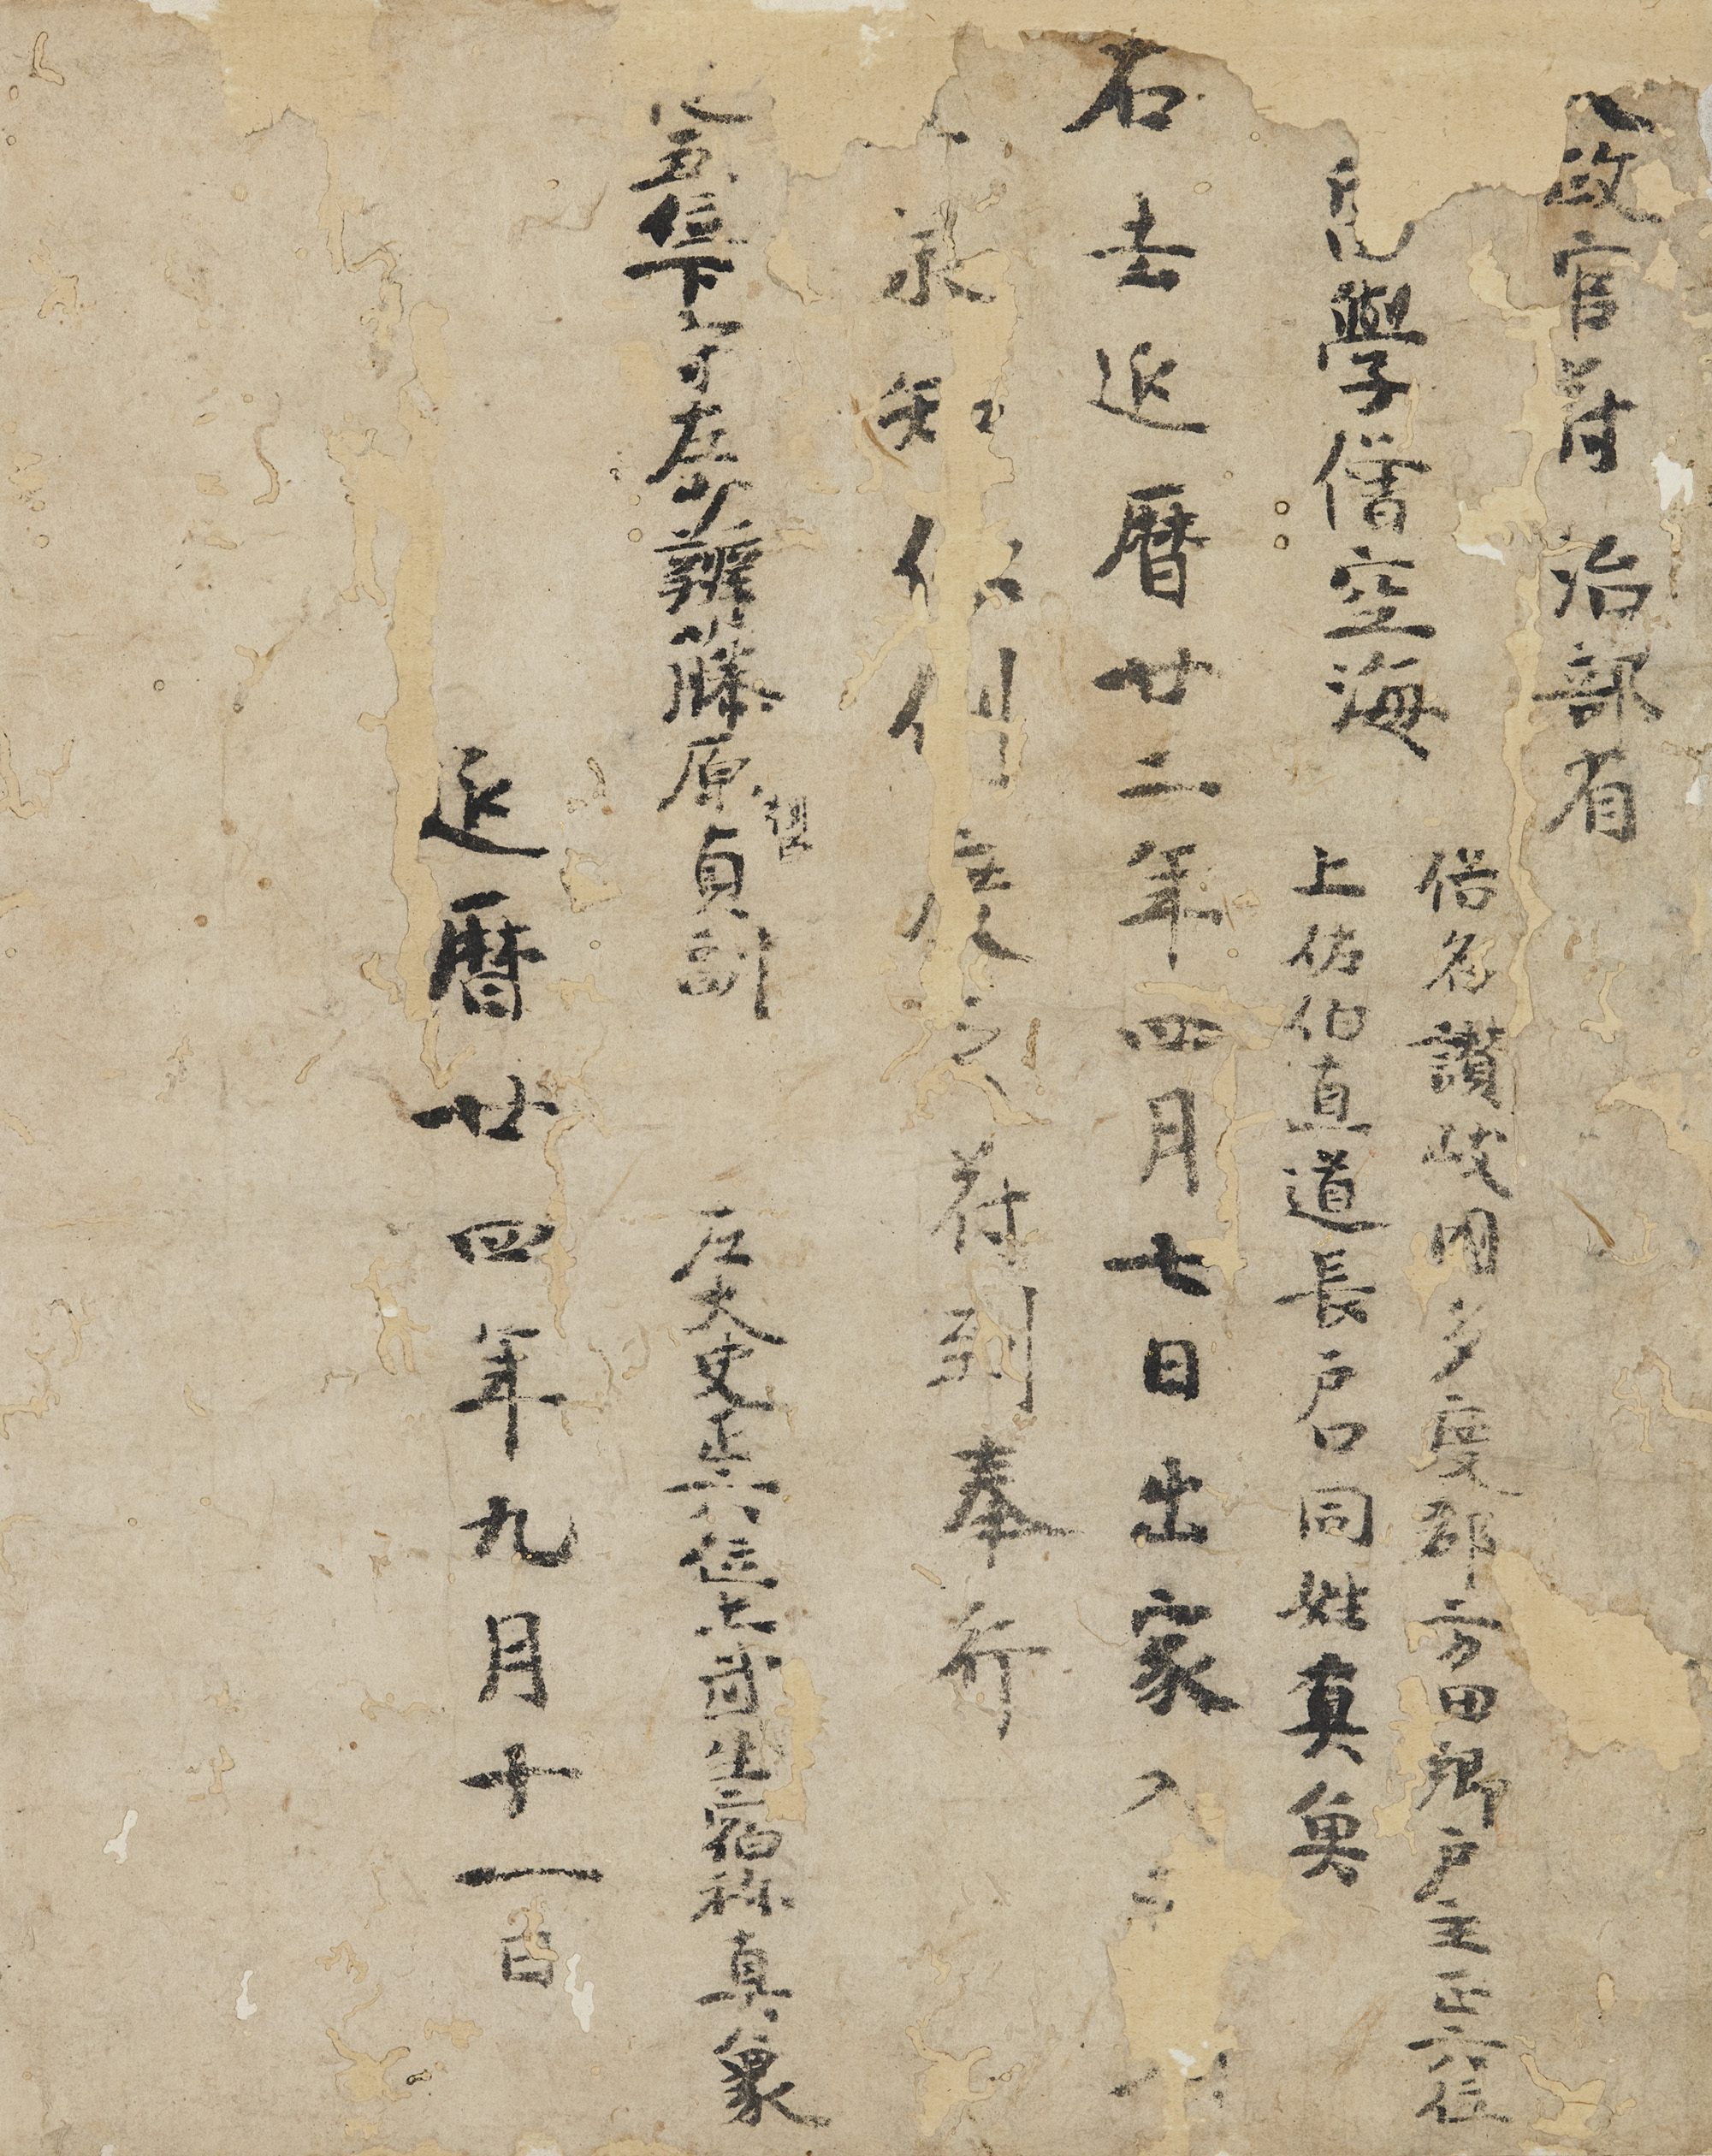 政官符 治部省
學僧空海
俗名讃岐国多度郡方田郷戸主正六位
上佐伯直道長戸口同姓真魚
右去延暦廿二年四月七日出家入
承知依例度之符到奉行
五位下守左少辨藤原貞副 左大史正六位上武生宿祢真象
朝臣
延暦廿四年九月十一日